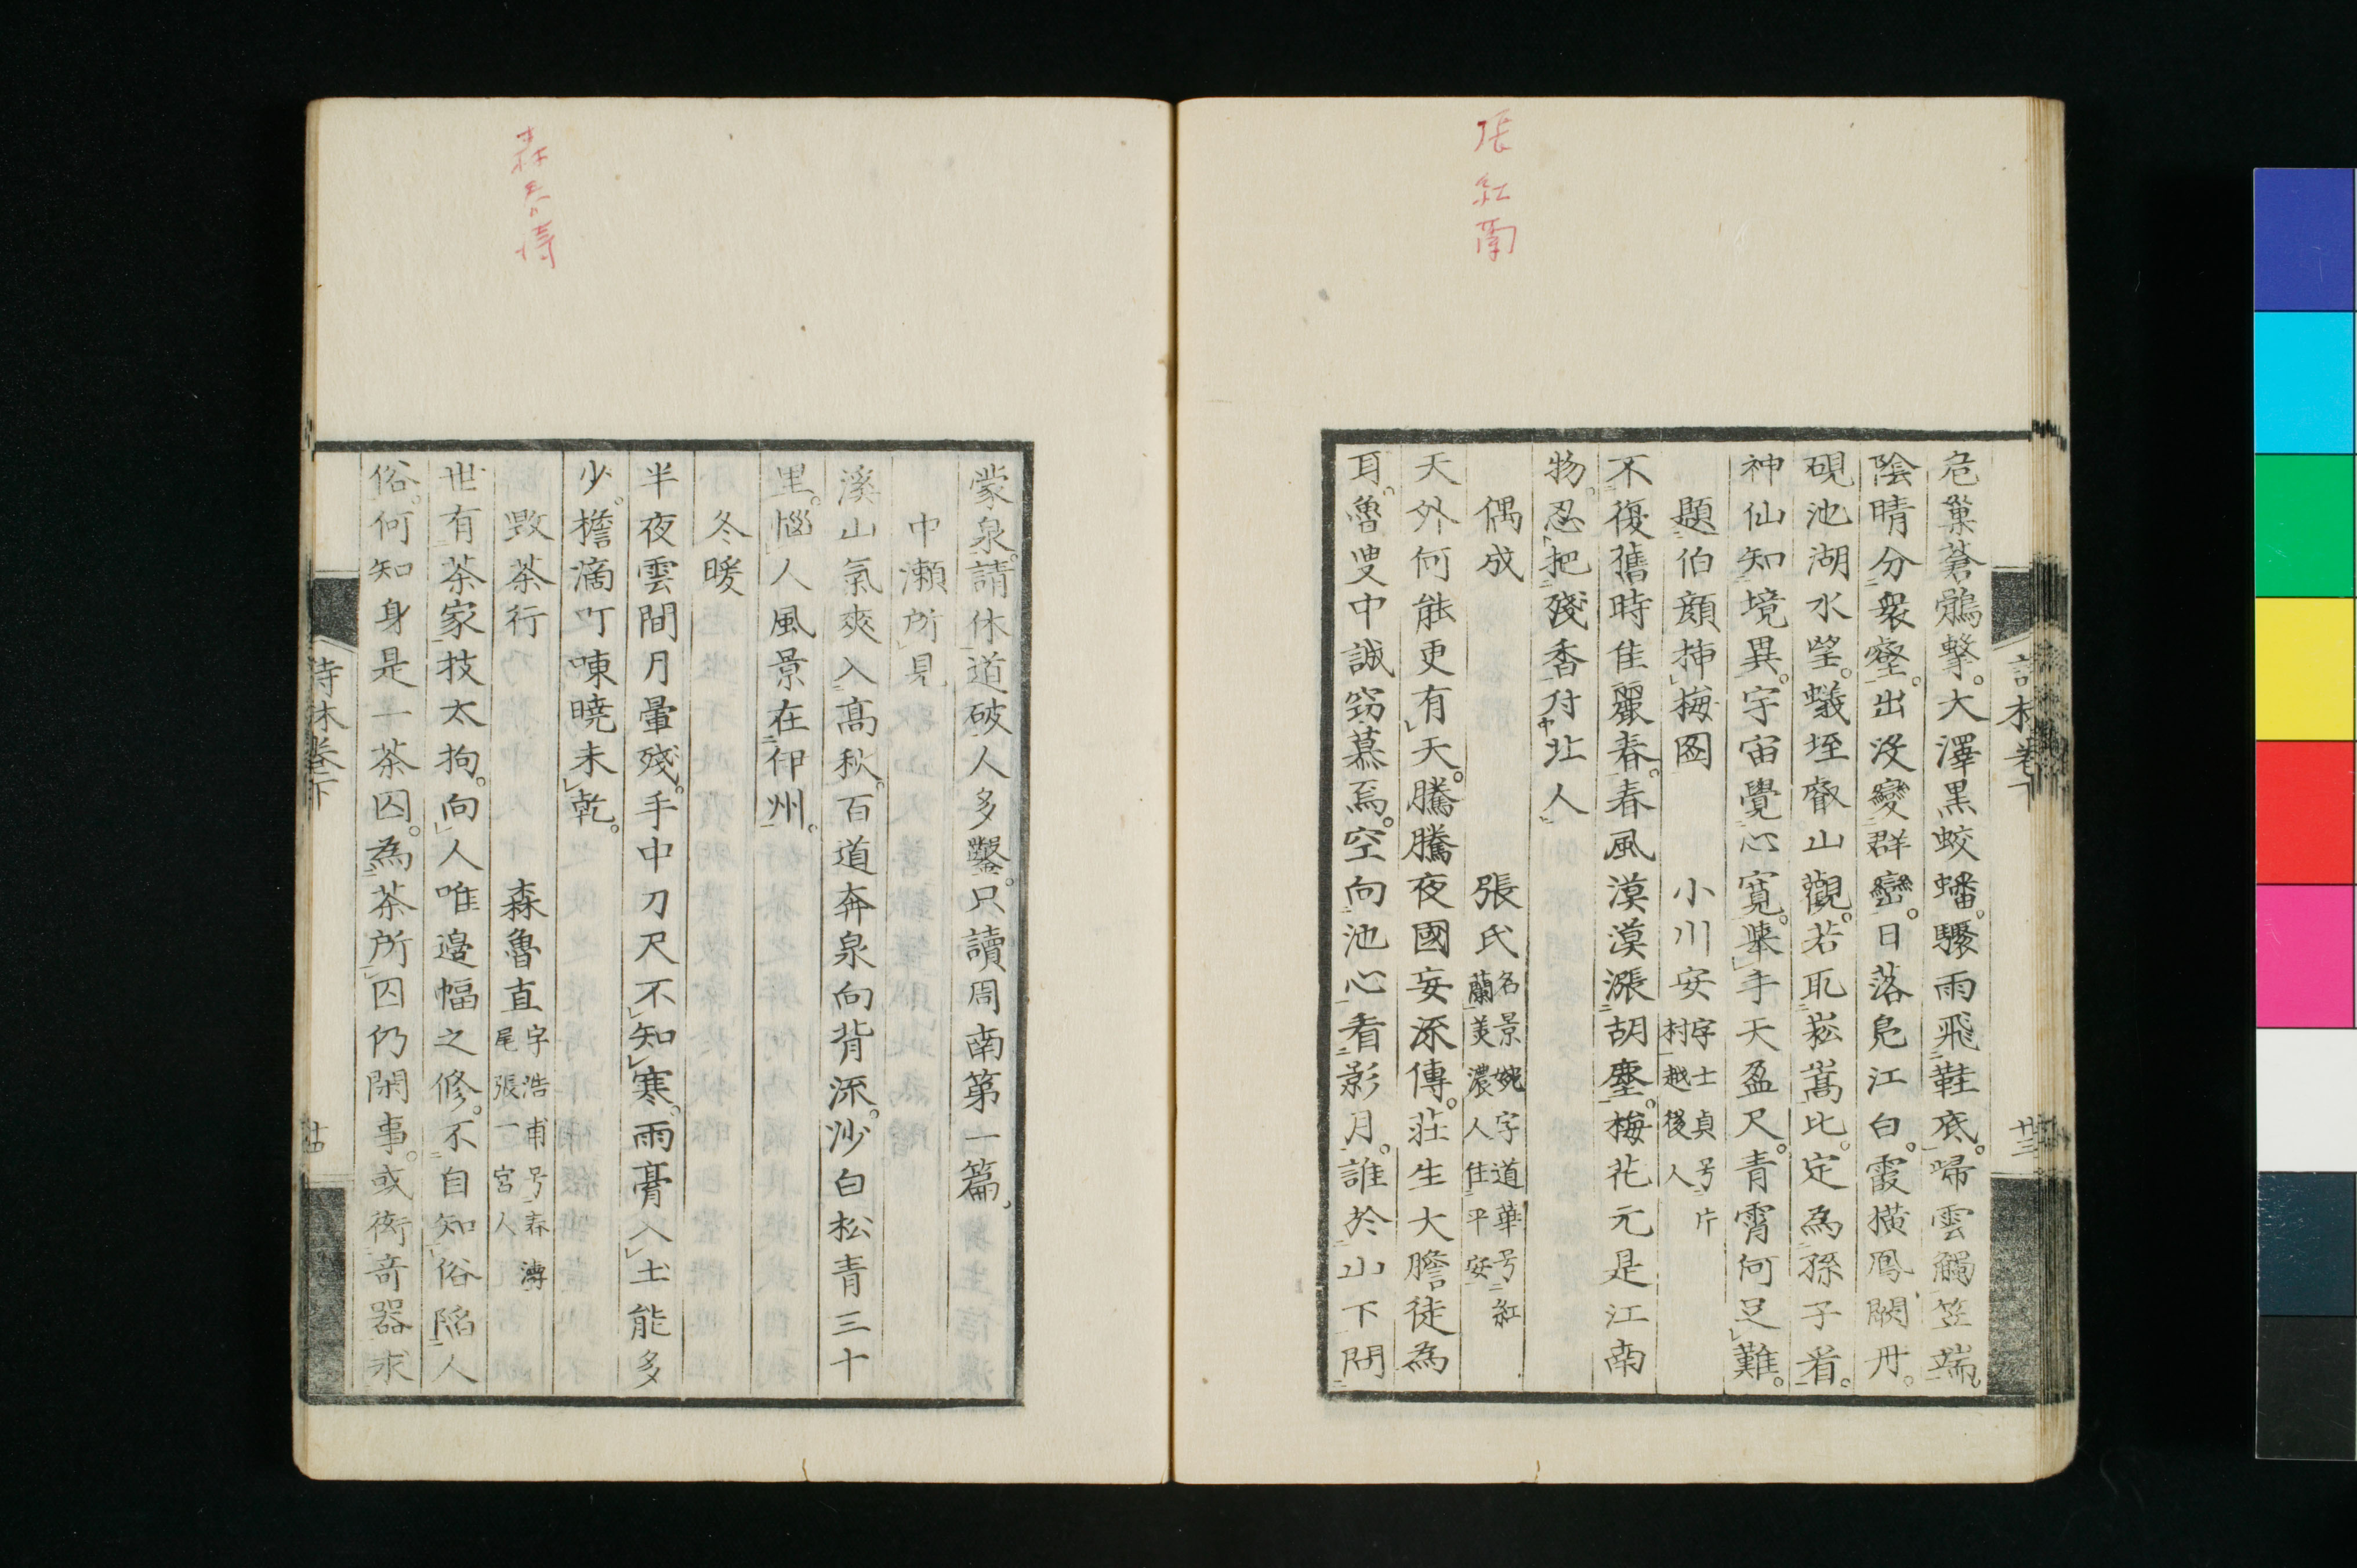 張紅蘭
危巢蒼鶻擊。大澤黒蛟蟠。驟雨飛鞋底。帰雲觸笠端。
陰晴分衆壑。出没變群巒。日落鳧江白。霞横鳳闕丹。
硯池湖水望。蟻垤叡山觀。若耴崧嵩比。定為孫子看。
神仙知境異。宇宙覺心寛。擧手天盈尺。青霄何足難。
題伯顔挿梅圖
小川安
字士貞号片
村越後人
不復舊時佳麗春。春風漠漠漲胡塵。梅花元是江南
物。忍把殘香付北人
偶成
張氏
名景婉字道華号紅
蘭美濃人住平安
天外何能更有天。騰騰夜國妄流傳。莊生大膽徒為
耳。魯叟中誠窃慕焉。空向池心看影月。誰於山下問
詩本卷下
廿三
森春濤
蒙泉。請休道破人多鑿。只讀周南第一篇、
中瀬所見
溪山氣爽入髙秋。百道奔泉向背流。沙白松青三十
里。惱人風景在伊州。
冬暖
半夜雲間月暈殘。手中刀尺不知寒。雨膏入土能多
少。檐滴叮咚曉未乾。
毀茶行
森魯直
字浩甫号春濤
尾張一宮人
世有茶家技太拘。向人唯邉幅之修。不自知俗陷人
俗。何知身是一茶囚。為茶所囚仍閑事。或衒竒器求
詩本卷下